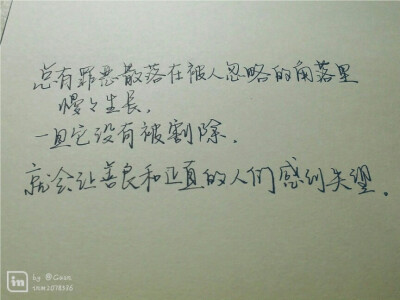 总有罪恶散落在被人忽略的角落里
慢々生长,
一旦它没有被割除.
就会让善良和正直的人们感到失望.
in by @Cean
inm2078526